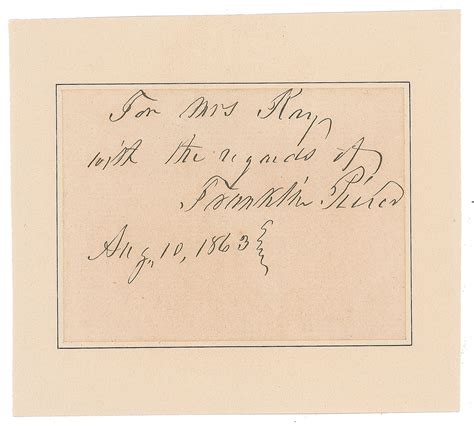 For Mrs Ray
with the regards of
Franklin Pierce
Aug. 10, 1863